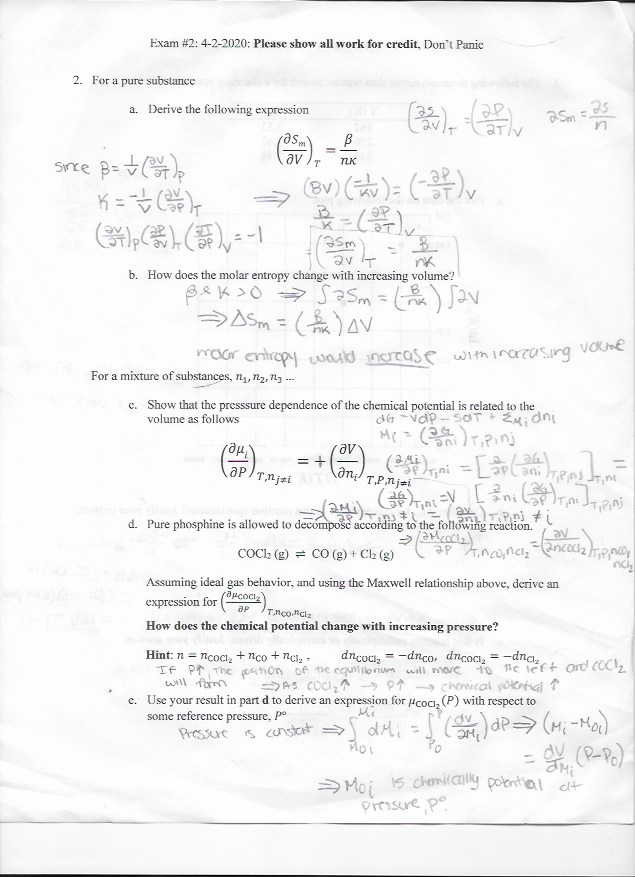 Exam #2: 4-2-2020: Please show all work for credit, Don't Panic
2. For a pure substance
a. Derive the following expression
(∂S/∂V)_T = (∂P/∂T)_V   ∂Sm = ∂S/n
(∂S_m/∂V)_T = β/nκ
since β = 1/V (∂V/∂T)_P
K = -1/V (∂V/∂P)_T
(∂V/∂T)_P (∂P/∂V)_T (∂T/∂P)_V = -1
⇒ (BV)(-1/KV) = (-∂P/∂T)_V
B/K = (∂P/∂T)_V
= (∂Sm/∂V)_T = B/nK
b. How does the molar entropy change with increasing volume?
β & K > 0 ⇒ ∫∂Sm = (B/nK) ∫∂V
⇒ ΔSm = (B/nK) ΔV
molar entropy would increase with increasing volume
For a mixture of substances, n₁, n₂, n₃ ...
c. Show that the presssure dependence of the chemical potential is related to the
volume as follows
dG = VdP - SdT + ΣMi dni
Mi = (∂G/∂ni)T,P,nj
(∂μ_i/∂P)_T,n_j≠i = +(∂V/∂n_i)_T,P,n_j≠i
(∂Mi/∂P)T,ni = [∂/∂P (∂G/∂ni)T,P,nj]T,ni =
(∂G/∂P)T,ni = V [∂/∂ni (∂G/∂P)T,ni]T,P,nj
⇒ (∂Mi/∂P)T,nj ≠ i = (∂V/∂ni)T,P,nj ≠ i
d. Pure phosphine is allowed to decompose according to the following reaction.
COCl₂ (g) ⇌ CO (g) + Cl₂ (g)
⇒ (∂MCOCl₂/∂P)T,nCO,nCl₂ = (∂V/∂nCOCl₂)T,P,nCO,nCl₂
Assuming ideal gas behavior, and using the Maxwell relationship above, derive an
expression for (∂μ_COCl₂/∂P)_T,n_CO,n_Cl₂
How does the chemical potential change with increasing pressure?
Hint: n = n_COCl₂ + n_CO + n_Cl₂ ,   dn_COCl₂ = −dn_CO, dn_COCl₂ = −dn_Cl₂
If P↑, The position of the equilibrium will more to the left and COCl₂
will form ⇒ As COCl₂↑ → P↑ → chemical potential ↑
e. Use your result in part d to derive an expression for μ_COCl₂(P) with respect to
some reference pressure, P°
Pressure is constant ⇒ ∫_Moi^Mi dMi = ∫_Po^P (dV/∂Mi) dP ⇒ (Mi-Moi)
= dV/dMi (P-Po)
⇒ Moi is chemically potential at
pressure, p°